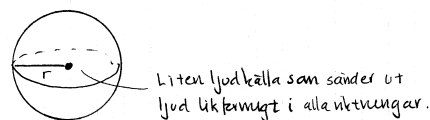 r
Liten ljudkälla som sänder ut
ljud likformigt i alla riktningar.